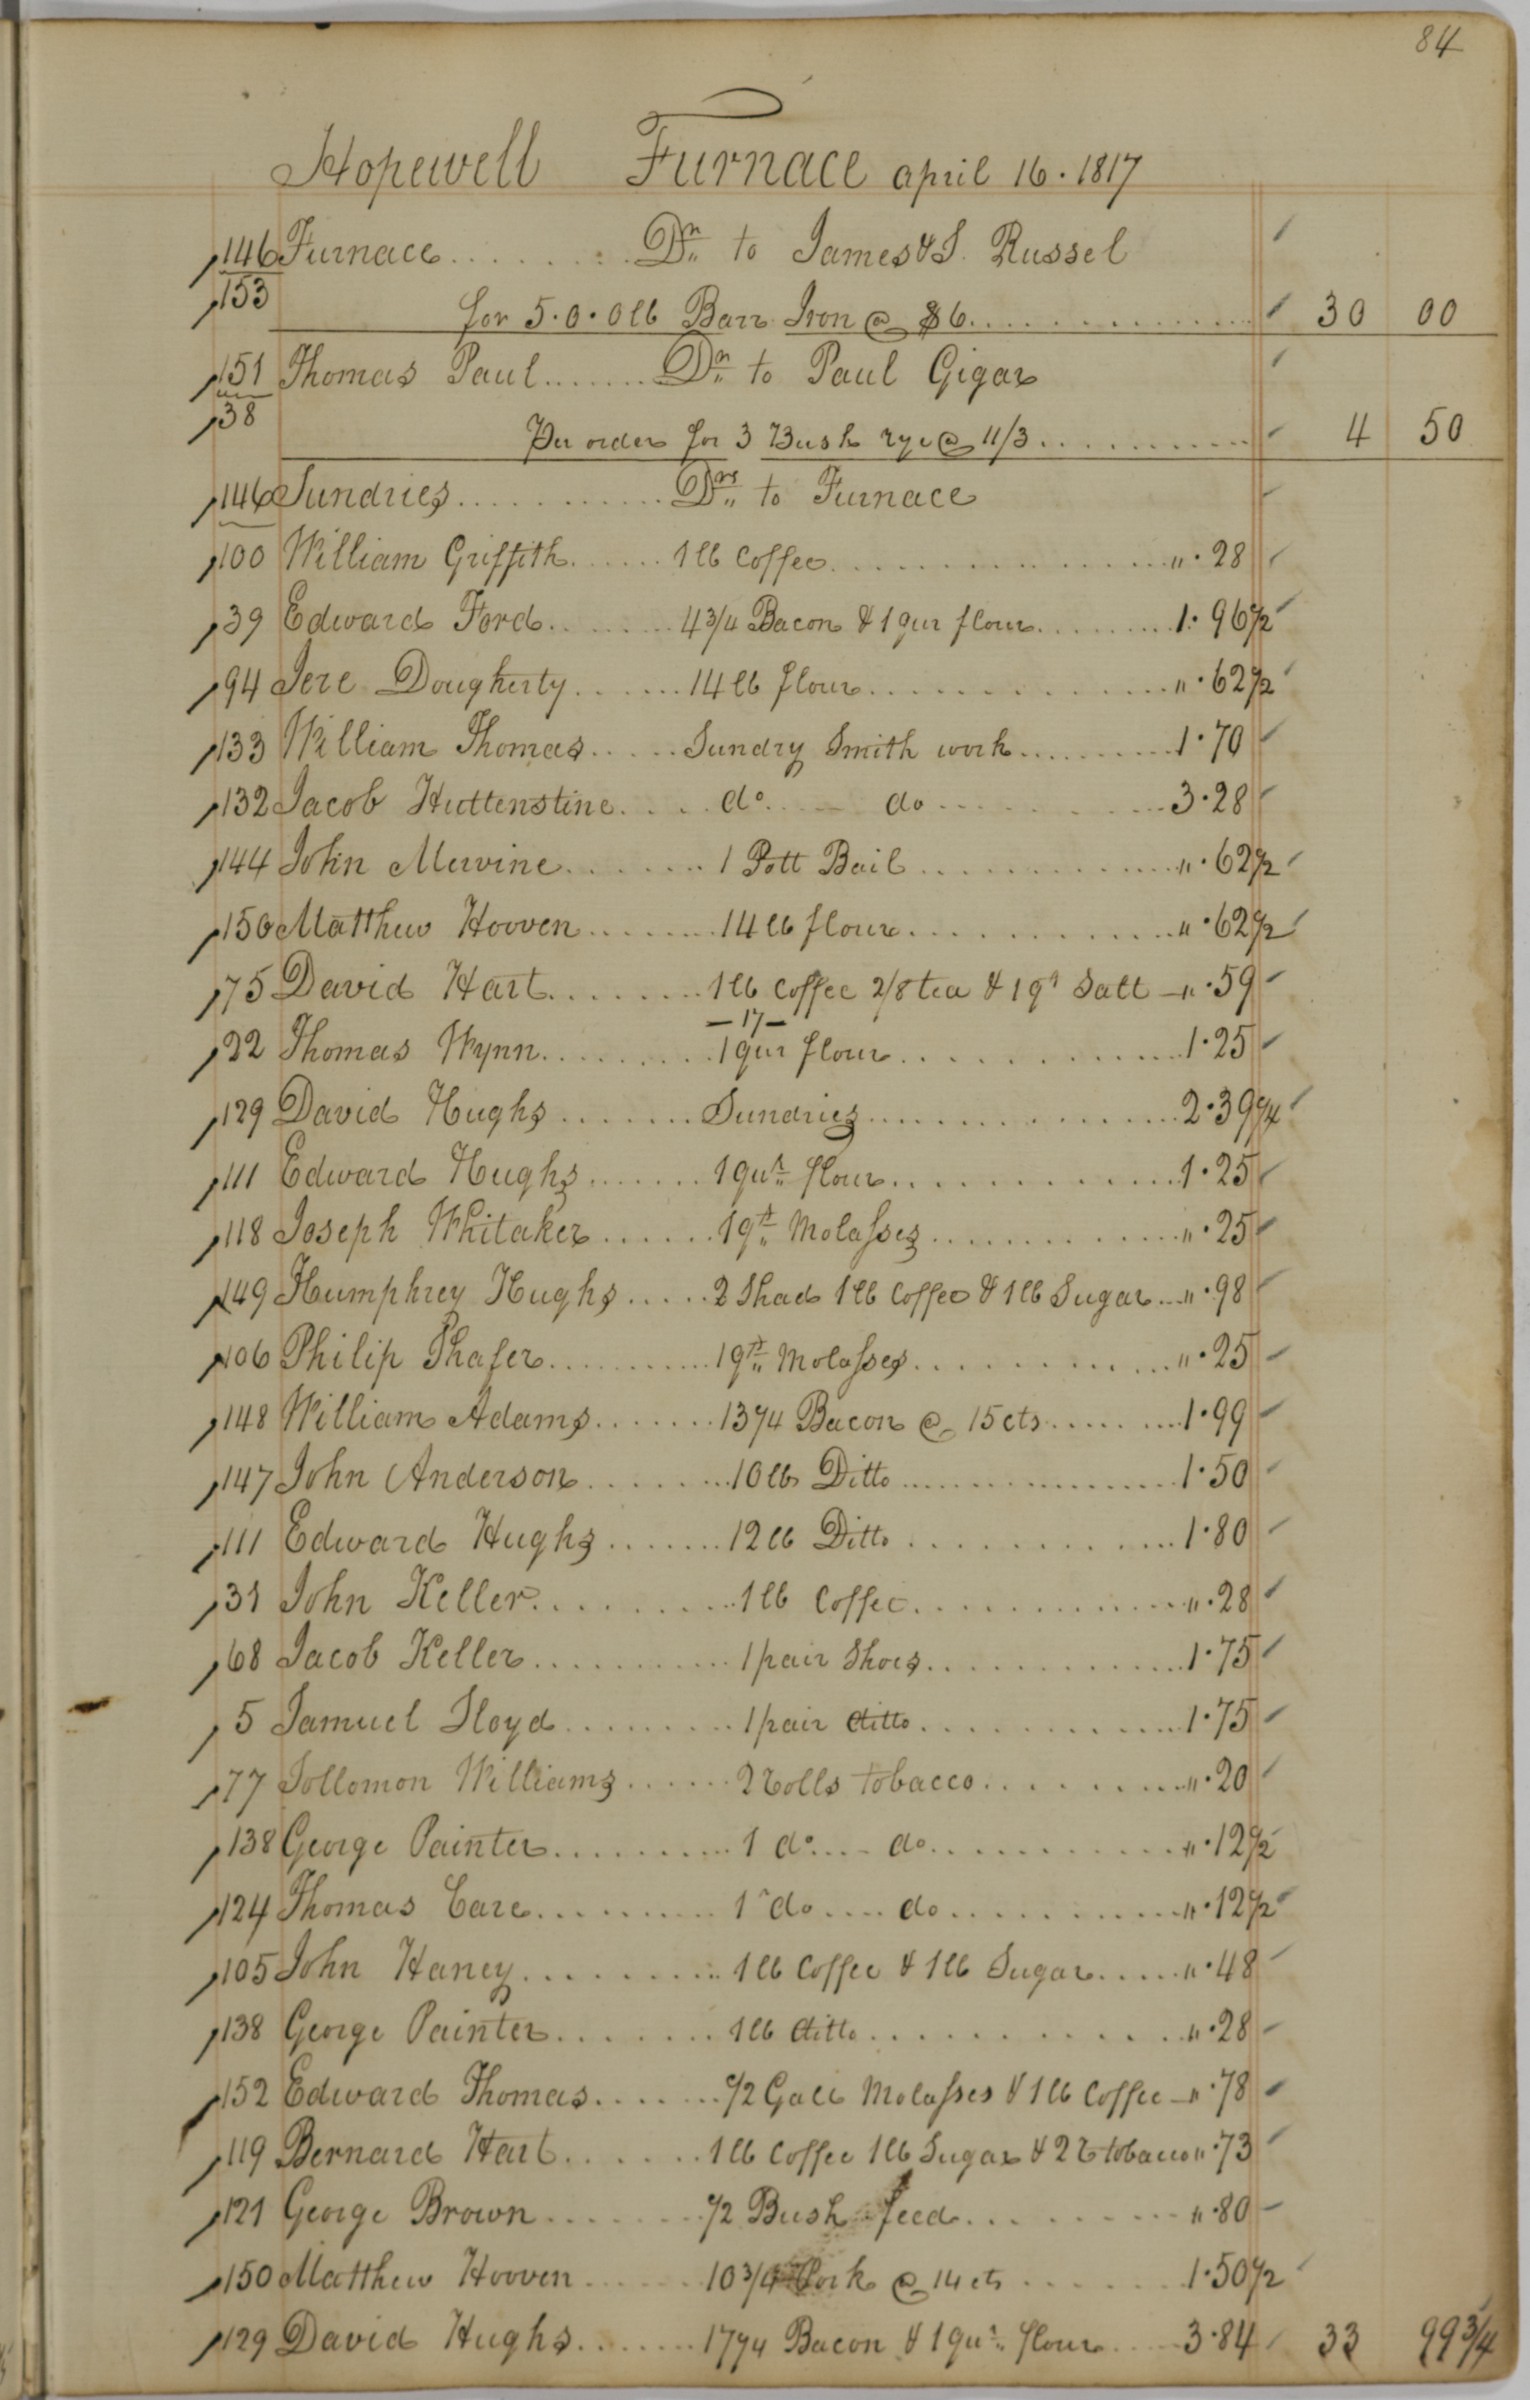 84
Hopewell Furnace april 16 . 1817
146 Furnace ........ Dr. to James & S. Russel
153
for 5.0.0 lb Barr Iron @ $6 ........ 30 00
151 Thomas Paul ....... Dr. to Paul Gigar
38
Per order for 3 Bush rye @ 11/3 ........... 4 50
146 Sundries ........... Drs. to Furnace
100 William Griffith ...... 1 lb Coffee ........ ". 28
39 Edward Ford ........ 4 3/4 Bacon & 1 qur flour ......... 1. 96 1/2
94 Jere Dougherty ...... 14 lb flour ........ ". 62 1/2
133 William Thomas ..... Sundry Smith work ......... 1.70
132 Jacob Huttenstine .... do ...... do ........ 3.28
144 John Mervine ....... 1 Pott Bail ........ ". 62 1/2
150 Matthew Hooven ....... 14 lb flour ........ ". 62 1/2
75 David Hart ........ 1 lb Coffee 2/8 tea & 1 qt Salt — ". 59
— 17 —
22 Thomas Wynn ......... 1 qur flour ........ 1.25
129 David Hughs ....... Sundries ........ 2.39 1/4
111 Edward Hughs ....... 1 qur. flour ........ 1.25
118 Joseph Whitaker ...... 1 qt. Molasses ........ ". 25
149 Humphrey Hughs ..... 2 Shad 1 lb Coffee & 1 lb Sugar ... ". 98
106 Philip Shafer ......... 1 qt. Molasses ........ ". 25
148 William Adams ....... 13 1/4 Bacon @ 15 cts ........ 1.99
147 John Anderson ....... 10 lb Ditto ........ 1.50
111 Edward Hughs ....... 12 lb Ditto ........ 1.80
31 John Keller ......... 1 lb Coffee ........ ". 28
68 Jacob Keller ......... 1 pair Shoes ........ 1.75
5 Samuel Lloyd ......... 1 pair ditto ........ 1.75
77 Sollomon Williams ...... 2 rolls tobacco ........ ". 20
138 George Painter ......... 1 do .... do ........ ". 12 1/2
124 Thomas Care ......... 1 do .... do ........ ". 12 1/2
105 John Haney ......... 1 lb Coffee & 1 lb Sugar ..... ". 48
138 George Painter ....... 1 lb ditto ........ ". 28
152 Edward Thomas ....... 1/2 Gall Molasses & 1 lb Coffee — ". 78
119 Bernard Hart ....... 1 lb Coffee 1 lb Sugar & 2 r tobacco ". 73
121 George Brown ....... 1/2 Bush feed ........ ". 80
150 Matthew Hooven ...... 10 3/4 Pork @ 14 cts ...... 1.50 1/2
129 David Hughs ....... 17 1/4 Bacon & 1 qur. flour .... 3.84 33 99 3/4